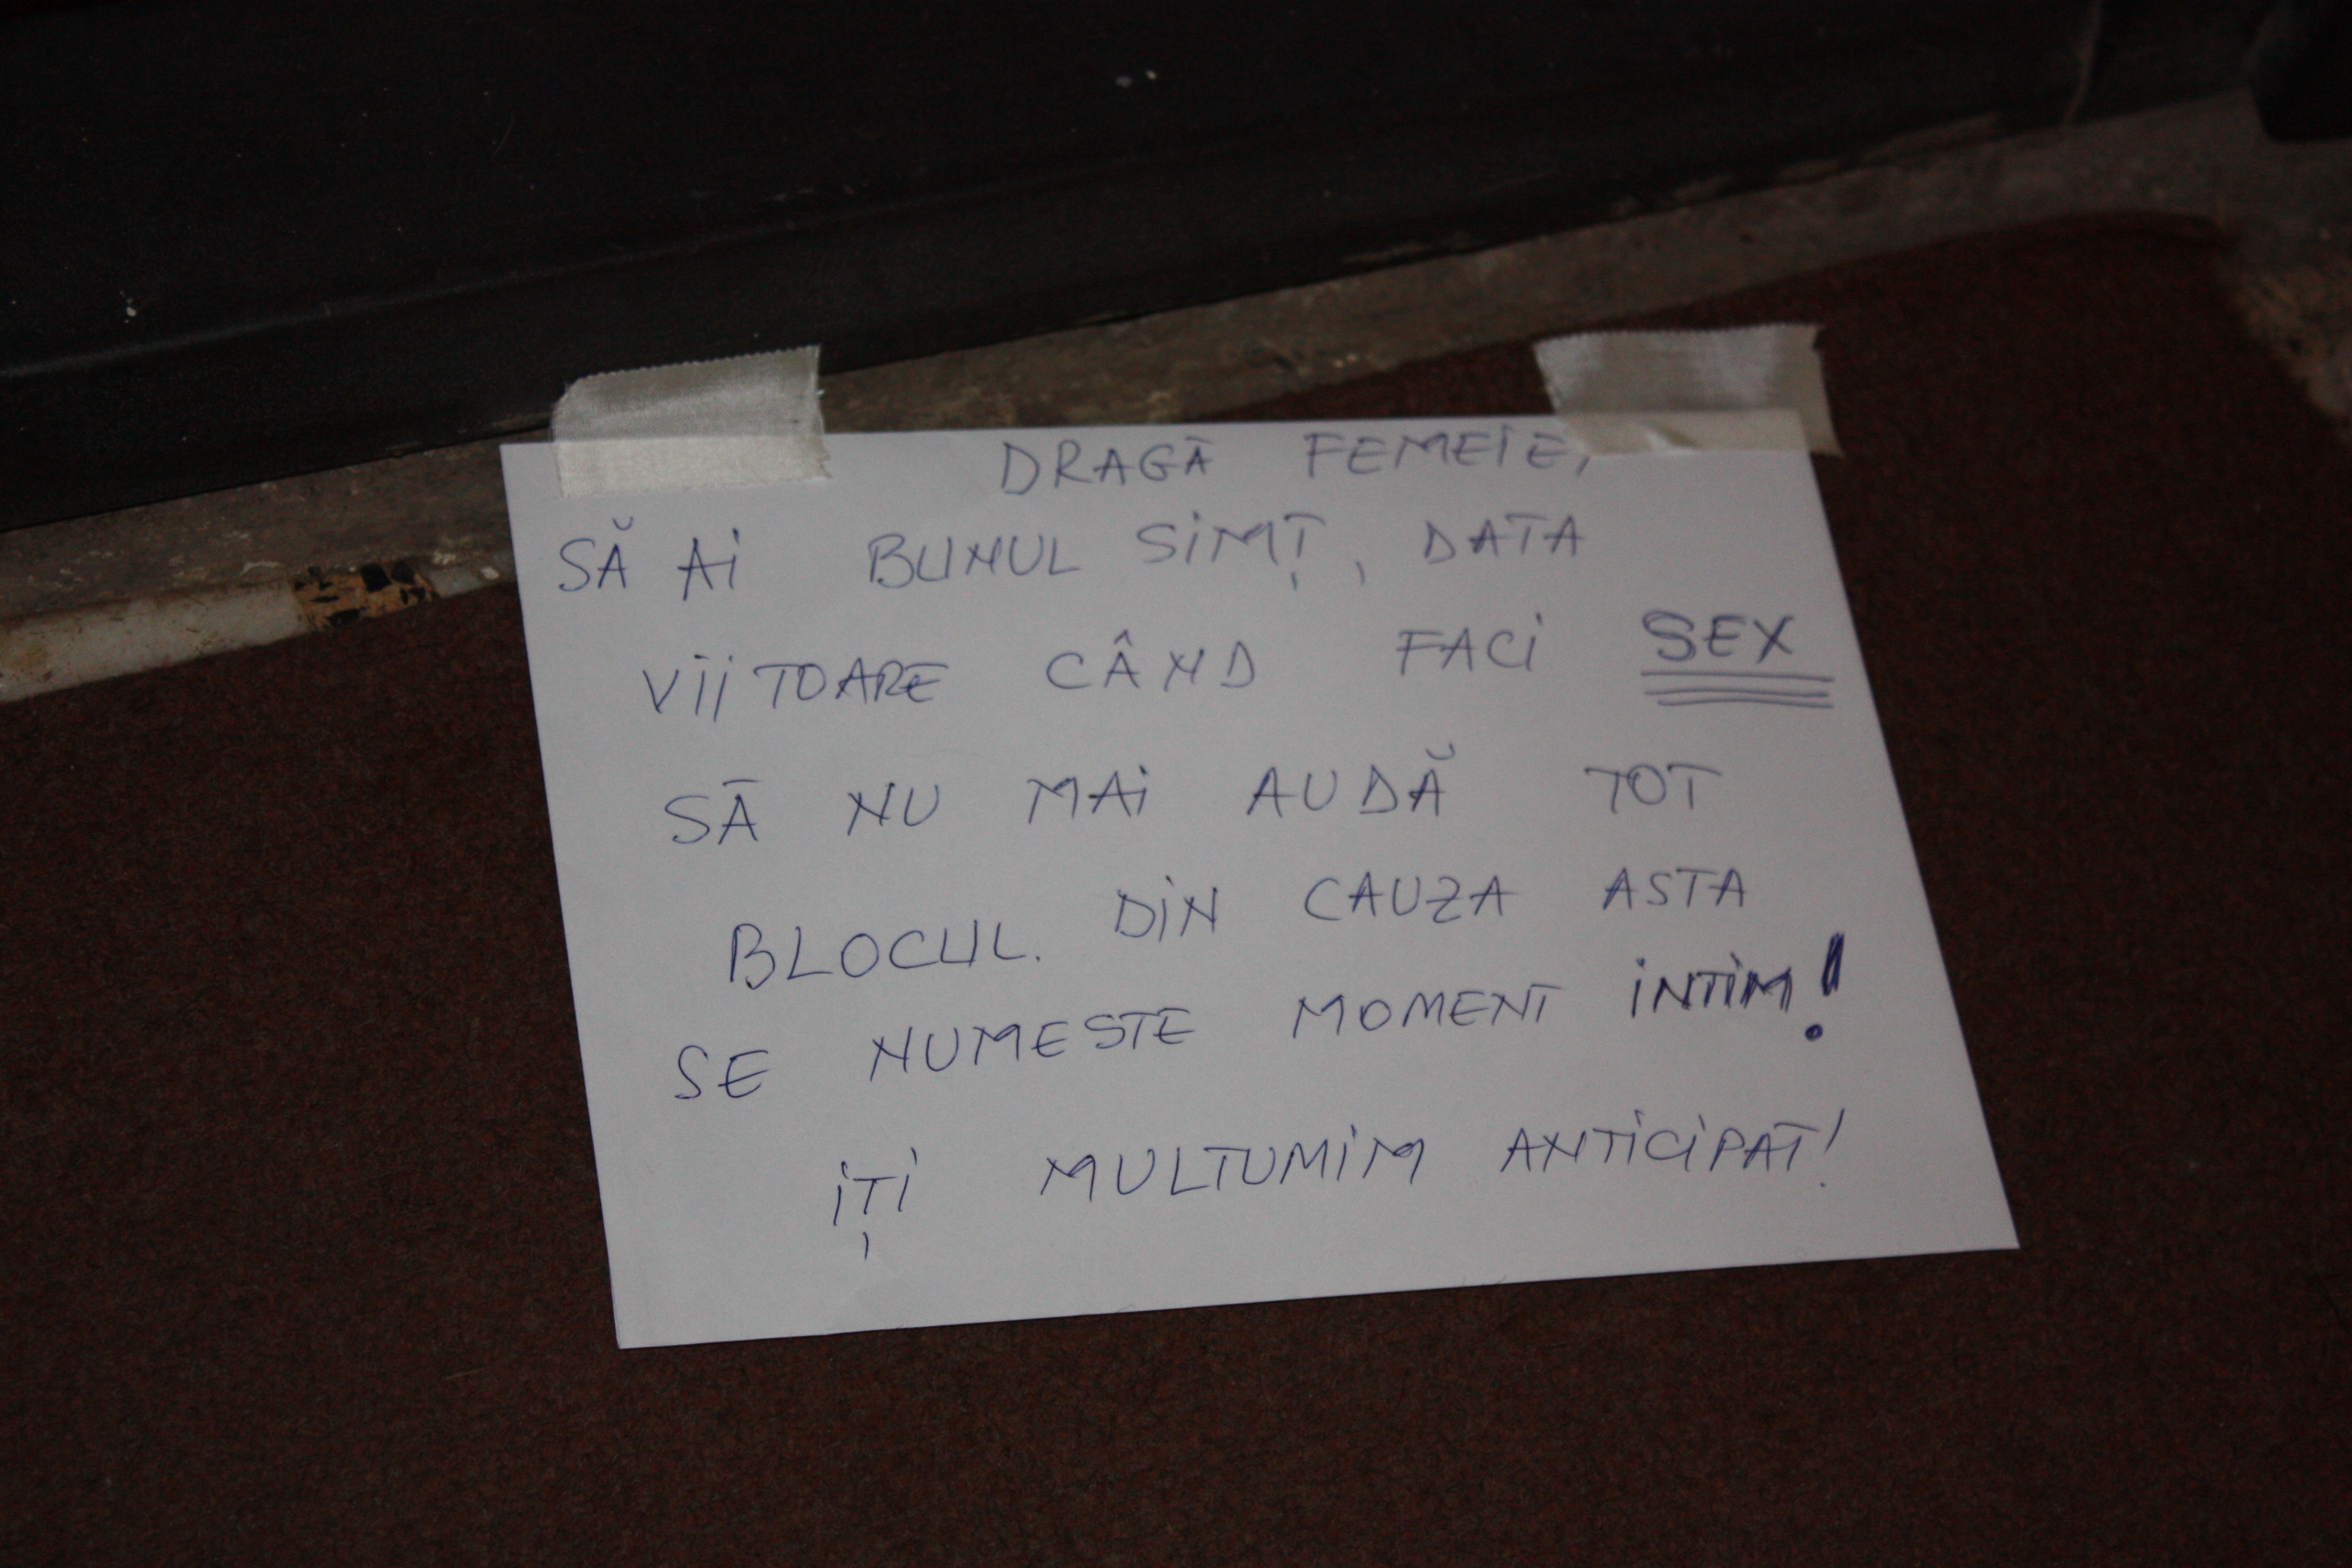 DRAGĂ FEMEIE,
SĂ AI BUNUL SIMȚ, DATA
VIITOARE CÂND FACI SEX
SĂ NU MAI AUDĂ TOT
BLOCUL. DIN CAUZA ASTA
SE NUMESTE MOMENT INTIM!
IȚI MULTUMIM ANTICIPAT!